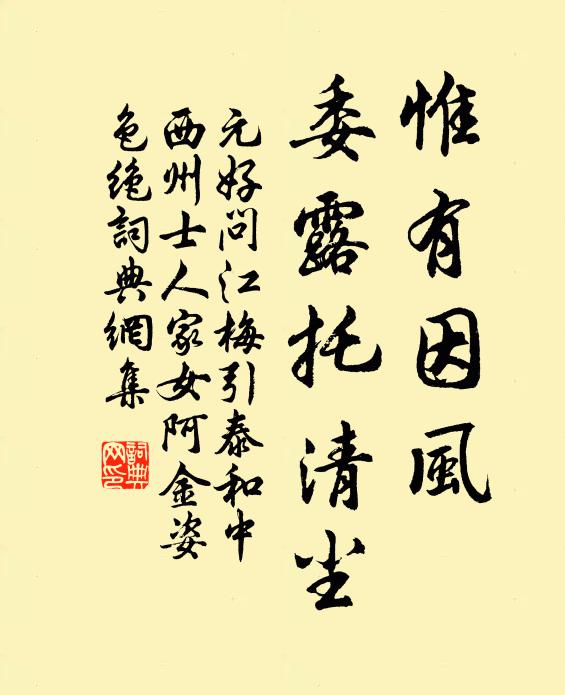 惟有因風
委露托清尘
元好问江梅引泰和中
西州士人家女阿金姿
色绝詞典網集
詞典
网印